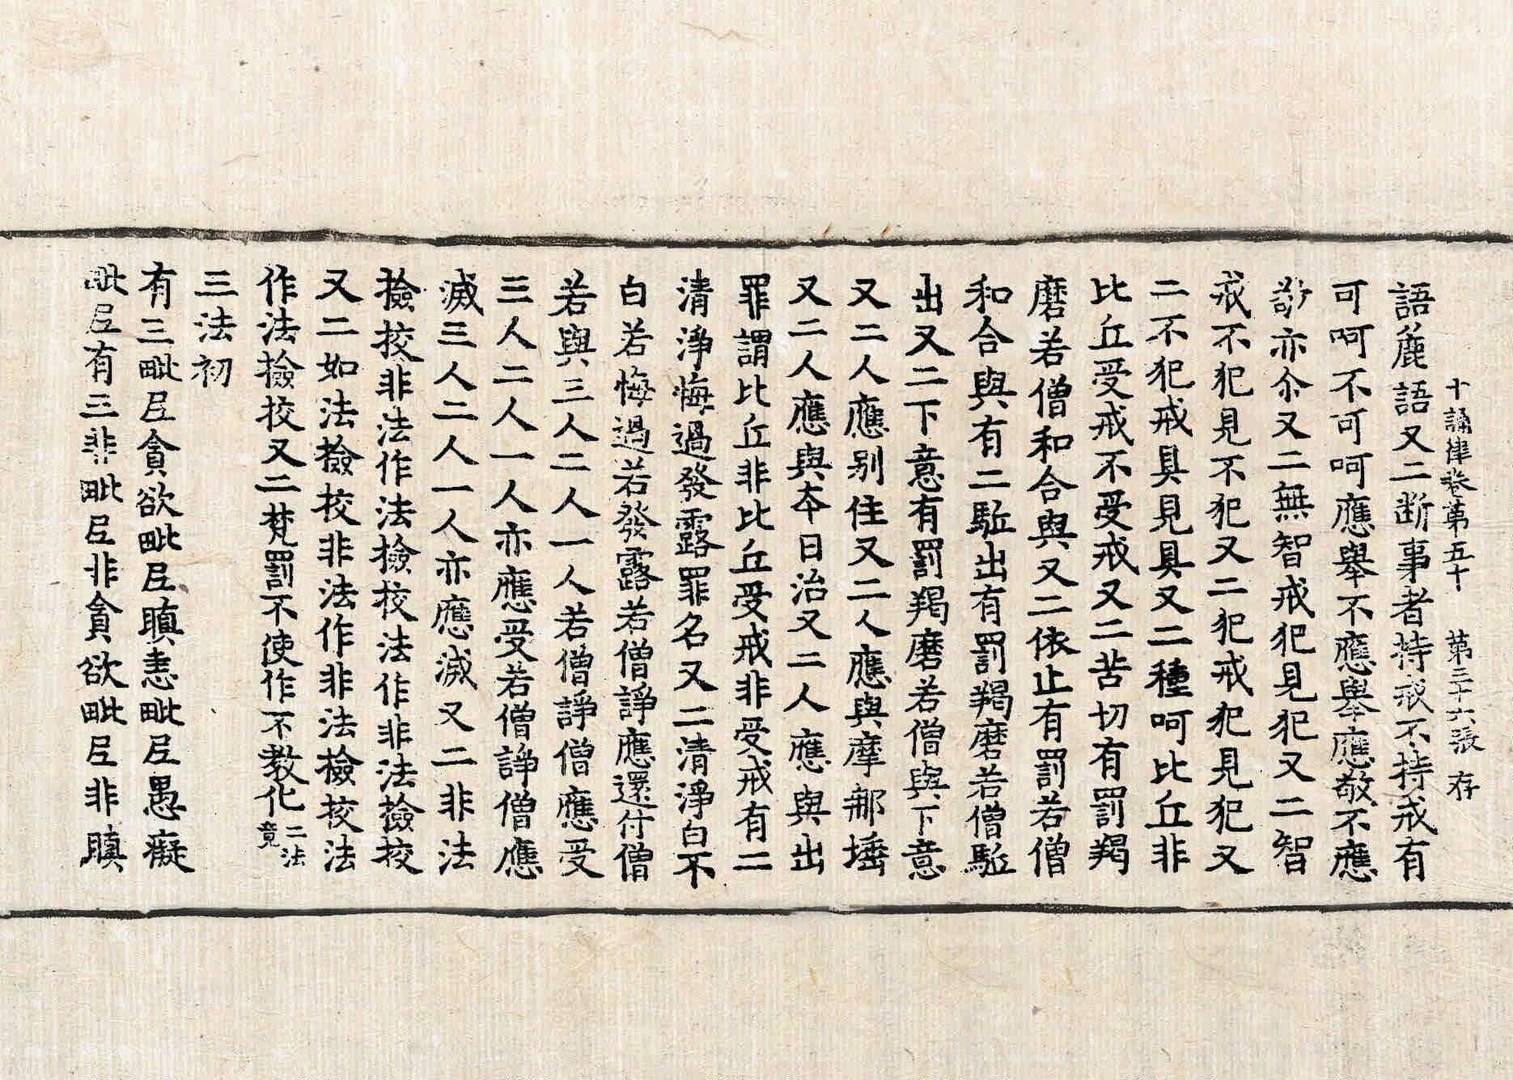 十誦律卷第五十　第三十六張　存
語麁語又二断事者持戒不持戒有
可呵不可呵應舉不應舉應敬不應
敬亦尒又二無智戒犯見犯又二智
戒不犯見不犯又二犯戒犯見犯又
二不犯戒具見具又二種呵比丘非
比丘受戒不受戒又二苦切有罰羯
磨若僧和合與又二依止有罰若僧
和合與有二駈出有罰羯磨若僧駈
出又二下意有罰羯磨若僧與下意
又二人應别住又二人應與摩那埵
又二人應與夲日治又二人應與出
罪謂比丘非比丘受戒非受戒有二
清淨悔過發露罪名又二清淨白不
白若悔過若發露若僧諍應還付僧
若與三人二人一人若僧諍僧應受
三人二人一人亦應受若僧諍僧應
滅三人二人一人亦應滅又二非法
撿挍非法作法撿挍法作非法撿挍
又二如法撿挍非法作非法撿挍法
作法撿挍又二梵罰不使作不教化二法竟
三法初
有三毗尼貪欲毗尼瞋恚毗尼愚癡
毗尼有三非毗尼非貪欲毗尼非瞋